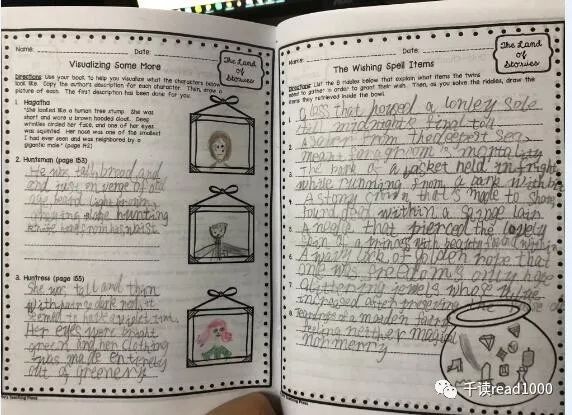 Name: Date:
The Land of Stories
Visualizing Some More
Directions: Use your book to help you visualize what the characters below
look like. Copy the author's description for each character. Then, draw a
picture of each. The first description has been done for you.
1. Hagatha
"She looked like a human tree stump. She was
short and wore a brown hooded cloak. Deep
wrinkles circled her face, and one of her eyes
was squinted. Her nose was one of the smallest
I had ever seen and was neighbored by a
gigantic mole" (page 142)
2. Huntsman (page 153)
He was tall, broad and
and just on verge of old
age
3. Huntress (page 155)
She was tall and thin
with dark red it
seemed to have a violet
Her eyes were bright
green and her clothing
was made entirely
out of greenery
Name: Date:
The Land of Stories
The Wishing Spell Items
Directions: List the 8 riddles below that explain what items the twins
need to gather in order to grant their wish. Then, as you solve the riddles, draw the
items they retrieved inside the bowl.
1. Glass that housed a lonley sole
till midnight's final
2. A saber from the deepest sea
meant for a groom's mortality
3. The bark of a basket held in fright
while running from a bark with bite
4. A stony crown that's made to share
found within a savage lair
5. A needle that pierced the lovely
skin of a princess with beauty found within
6. A wavy lock of golden rope that
once was freedom's only hope
7. Glittering jewels whose value
increased after preserving
8. Teardrops of a maiden fairy
feeling neither magical
nor merry
千读read1000